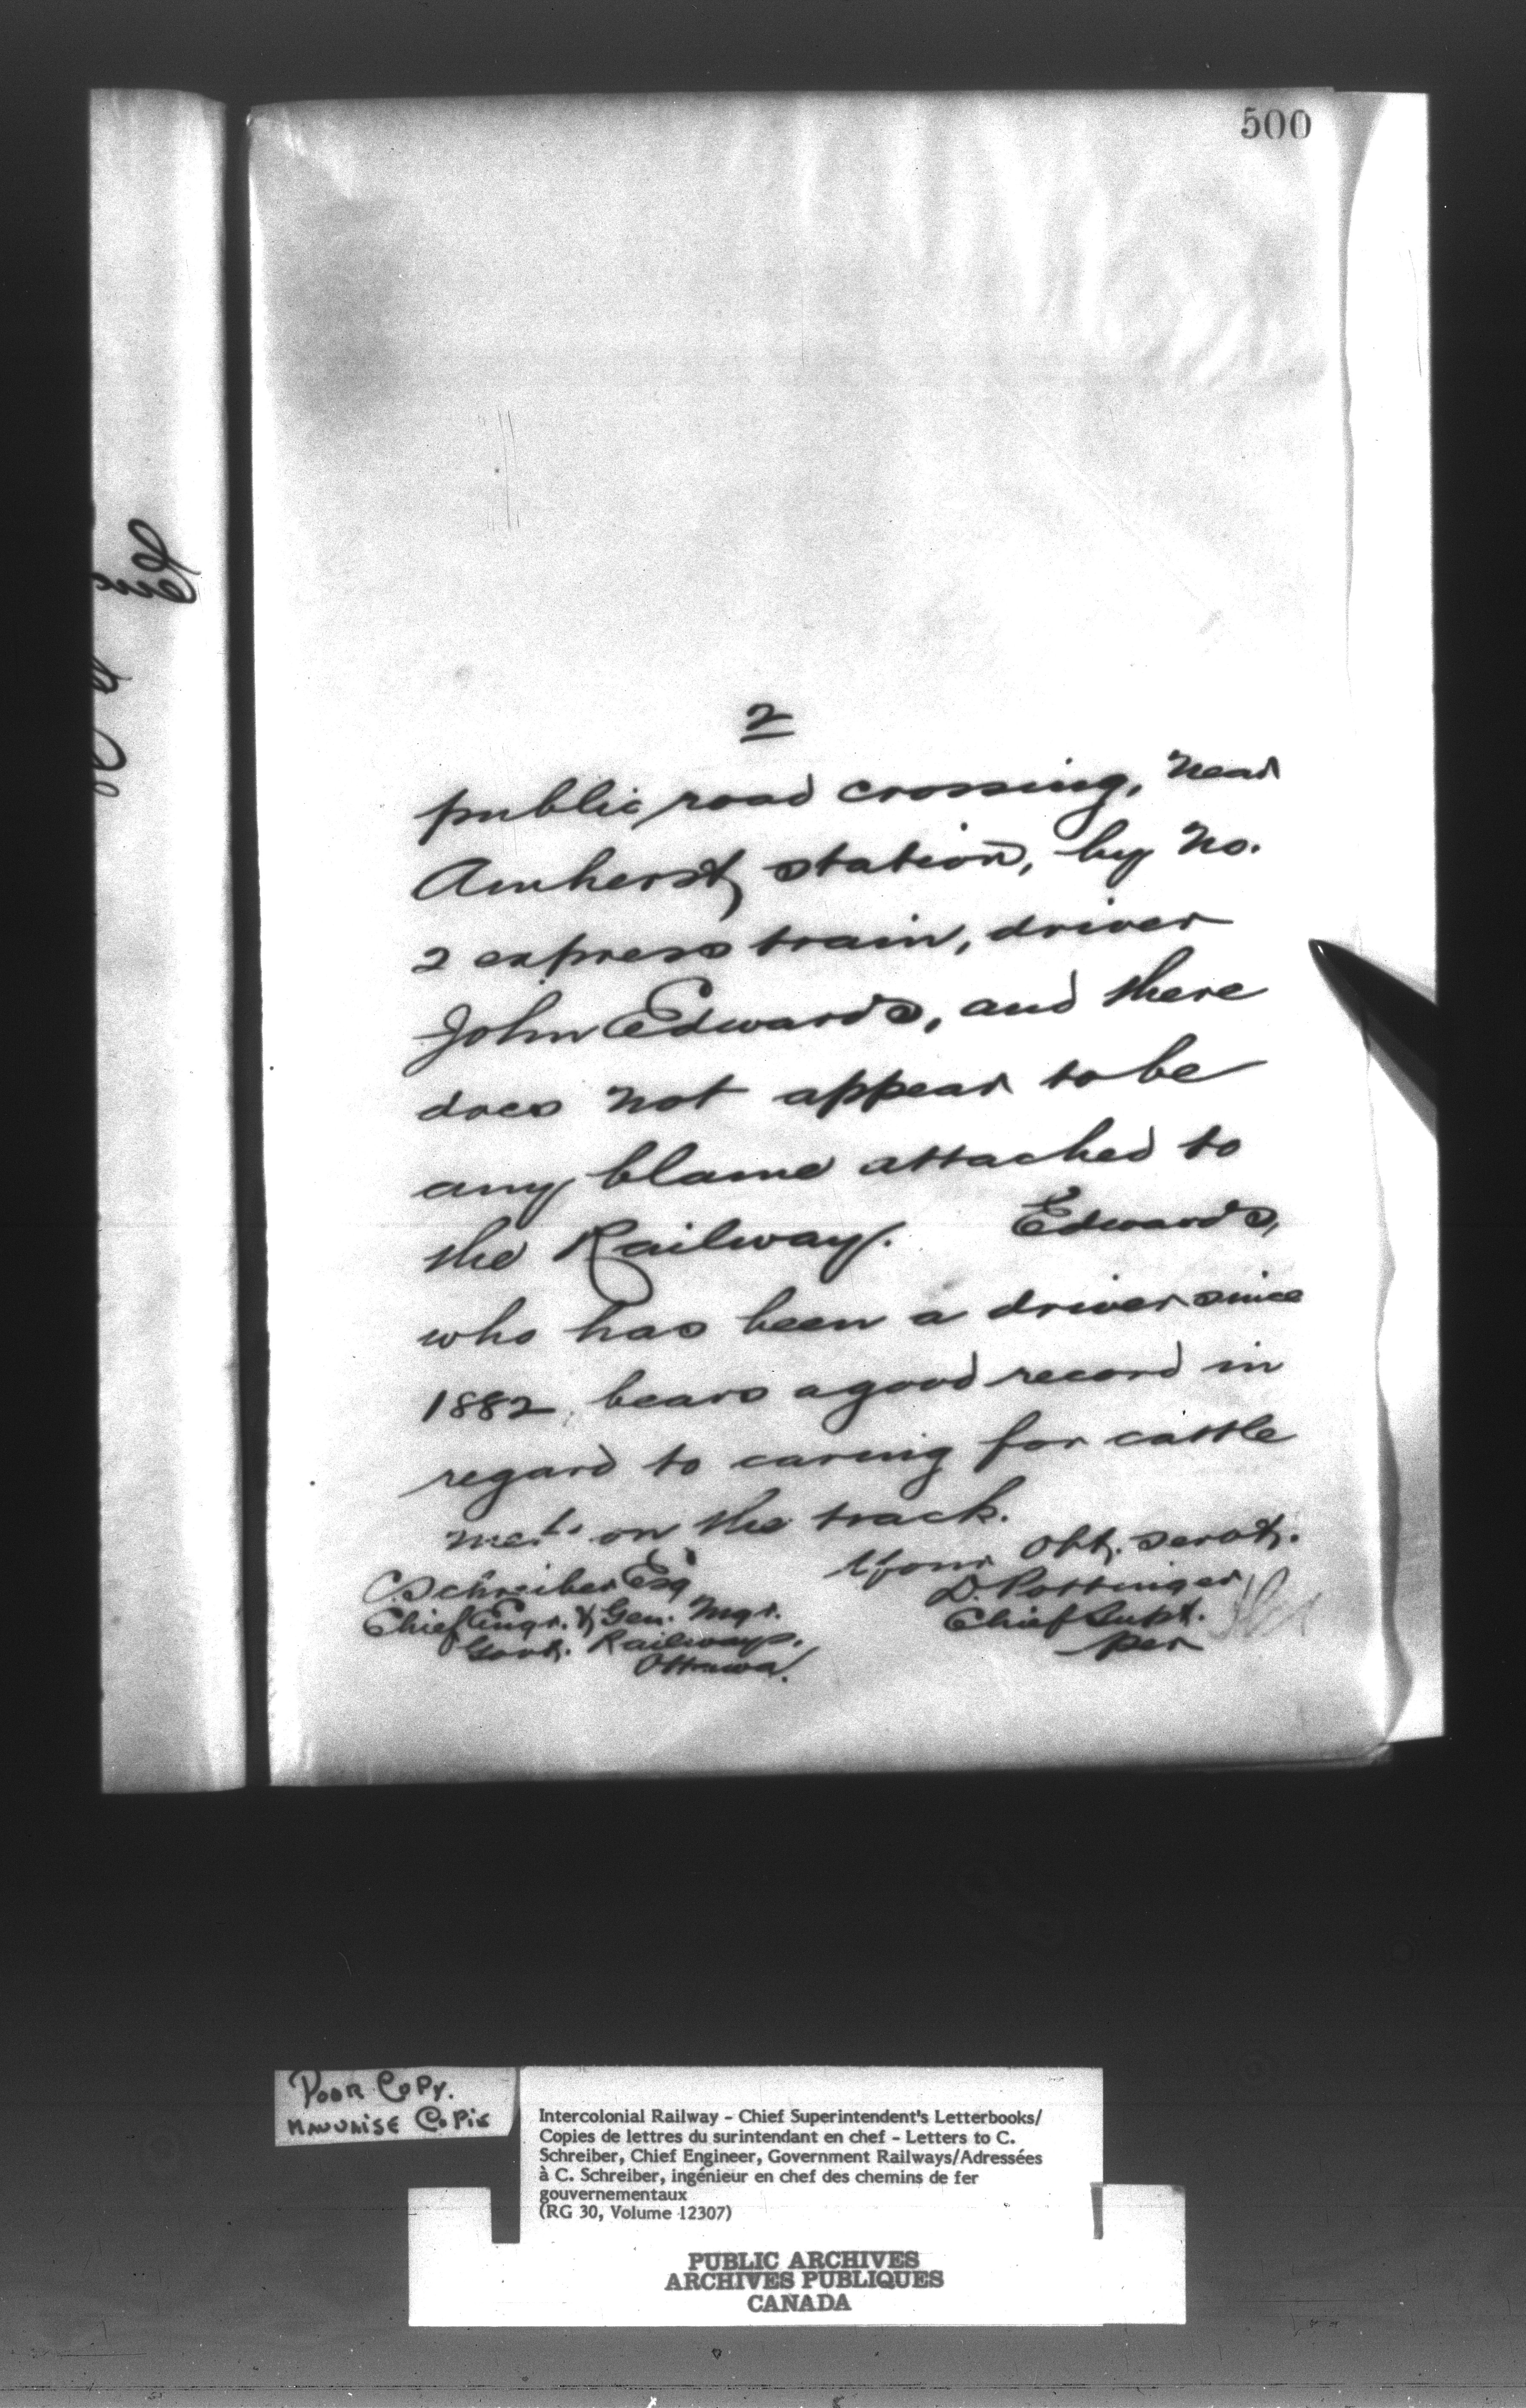 500
2
public road crossing, near
Amherst station, by No.
2 express train, driver
John Edwards, and there
does not appear to be
any blame attached to
the Railway. Edwards,
who has been a driver since
1882, bears a good record in
regard to caring for cattle
met on the track.
Your Obt. servt.
D. Pottinger
Chief Supt.
per
C. Schreiber Esq
Chief Engr. & Gen. Mgr.
Govt. Railways.
Ottawa.
POOR COPY.
MAUVAISE COPIE
Intercolonial Railway - Chief Superintendent's Letterbooks/
Copies de lettres du surintendant en chef - Letters to C.
Schreiber, Chief Engineer, Government Railways/Adressées
à C. Schreiber, ingénieur en chef des chemins de fer
gouvernementaux
(RG 30, Volume 12307)
PUBLIC ARCHIVES
ARCHIVES PUBLIQUES
CANADA